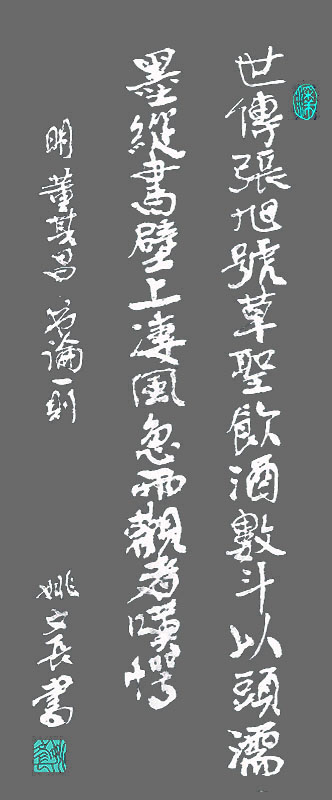 世傳張旭號草聖飲酒數斗以頭濡
墨縱書壁上凄風急雨觀者嘆愕
明 董其昌 書論一則
姚文長書